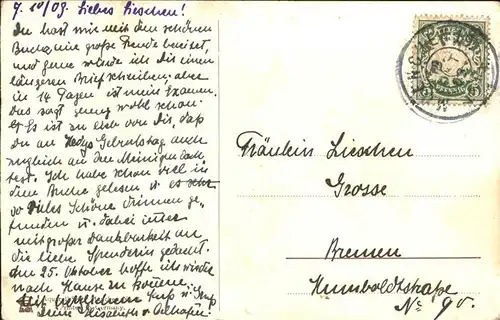 7. 10/09. Liebes Lieschen!
Du hast mir mit den schönen
Buche eine große Freude bereitet,
und gerne würde ich Dir einen
längeren Brief schreiben, aber
in 14 Tagen ist mein Examen.
Das sagt genug wohl schon.
Es ist zu lieb von Dir, daß
Du an Hedys Geburtstag auch
zugleich an den Meinigen dach-
test. Ich habe schon viel in
dem Buche gelesen u. es
so viles Schöne drinnen ge-
funden u. dabei immer
mit großer Dankbarkeit an
die liebe Spenderin gedacht.
Am 25. Oktober hoffe ich wieder
nach Hause zu kommen.
Mit herzlichem Gruß u. Kuß
Deine Elisabeth v.
Fräulein Lieschen
Grosse
Bremen
Humboldtstraße
No 90.